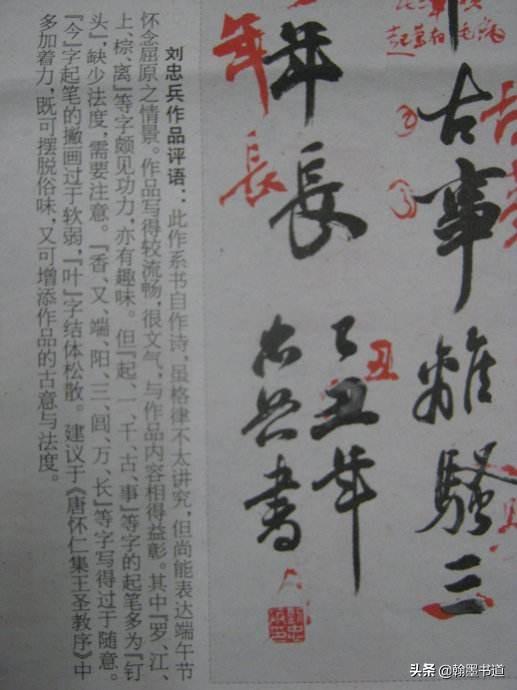 古事離騷三
年長
己丑年
忠兵書
年長
丑
刘忠兵作品评语：此作系书自作诗，虽格律不太讲究，但尚能表达端午节
怀念屈原之情景。作品写得较流畅，很文气，与作品内容相得益彰。其中『罗、江、
上、棕、离』等字颇见功力，亦有趣味。但『起、一、千、古、事』等字的起笔多为『钉
头』，缺少法度，需要注意。『香、又、端、阳、三、闾、万、长』等字写得过于随意。
『今』字起笔的撇画过于软弱，『叶』字结体松散。建议于《唐怀仁集王圣教序》中
多加着力，既可摆脱俗味，又可增添作品的古意与法度。
头条 @翰墨书道